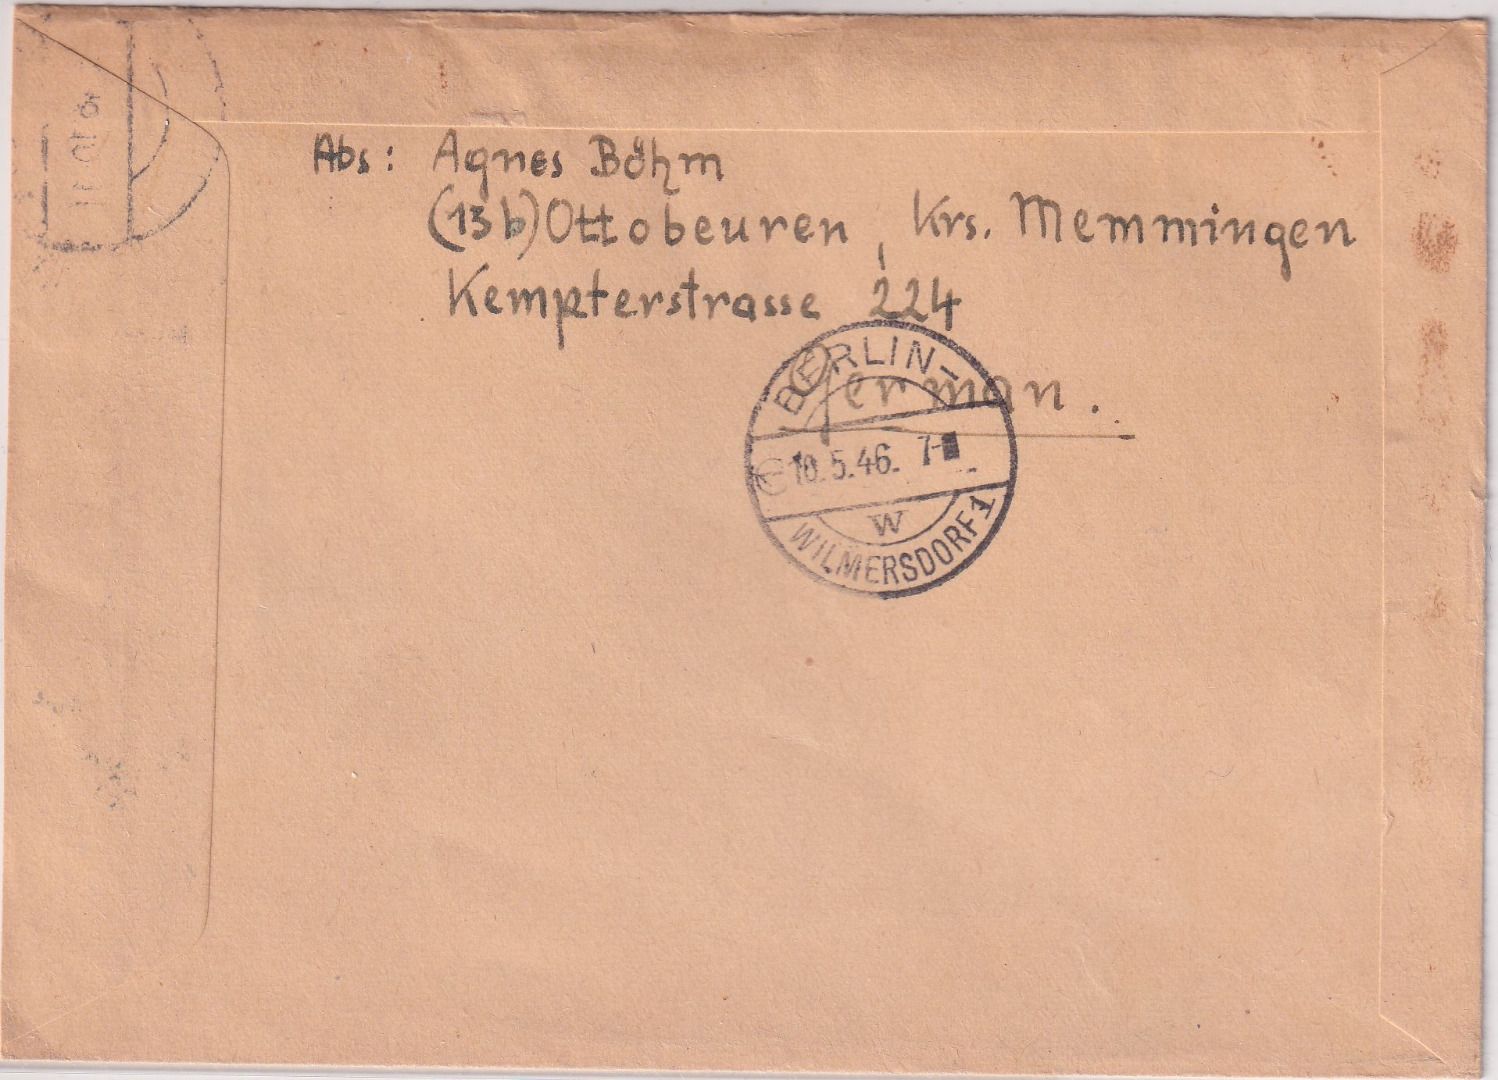 Abs: Agnes Böhm
(13b) Ottobeuren, Krs. Memmingen
Kempterstrasse 224
German.
BERLIN-
10.5.46. 7-
W
WILMERSDORF 1